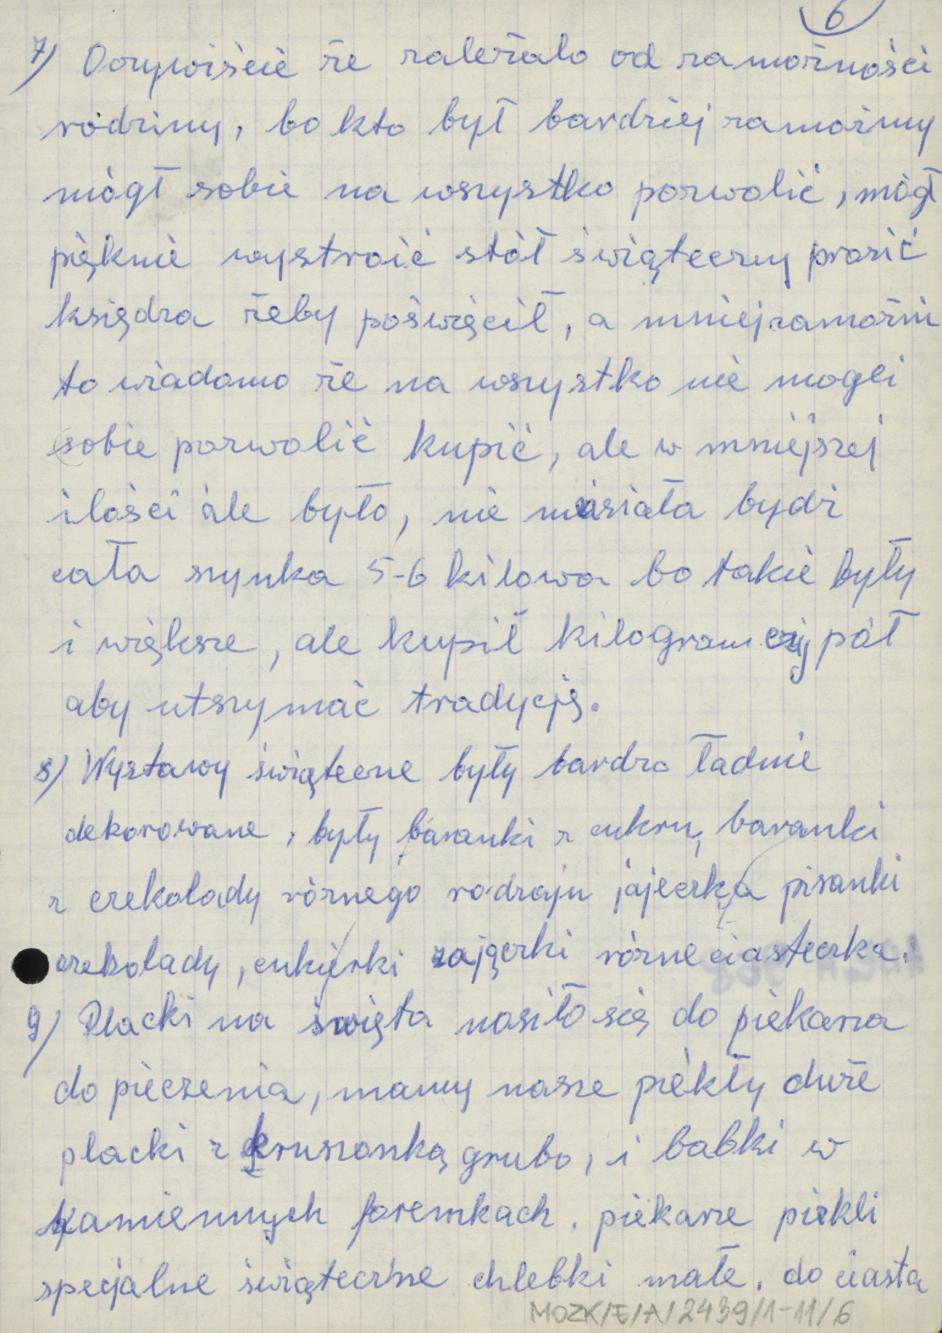 6
7) Oczywiście że zależało od zamożności
rodziny, bo kto był bardziej zamożny
mógł sobie na wszystko pozwolić, mógł
pięknie wystroić stół świąteczny prosić
księdza żeby poświęcił, a mniejzamożni
to wiadomo że na wszystko nie mogli
sobie pozwolić kupić, ale w mniejszej
ilości ale było, nie musiała bydź
cała szynka 5-6 kilowa bo takie były
i większe, ale kupił kilogram czy pół
aby utszymać tradycję.
8) Wystawy świąteczne były bardzo ładnie
dekorowane, były baranki z cukru, baranki
z czekolady różnego rodzaju jajeczka pisanki
czekolady, cukierki zajączki różne ciasteczka.
9) Placki na święta nosiło się do piekarza
do pieczenia, mamy nasze piekły duże
placki z kruszonką grubo, i babki w
kamiennych foremkach, piekarze piekli
specjalne świąteczne chlebki małe, do ciasta
MOZK/E/A/2439/1-11/6